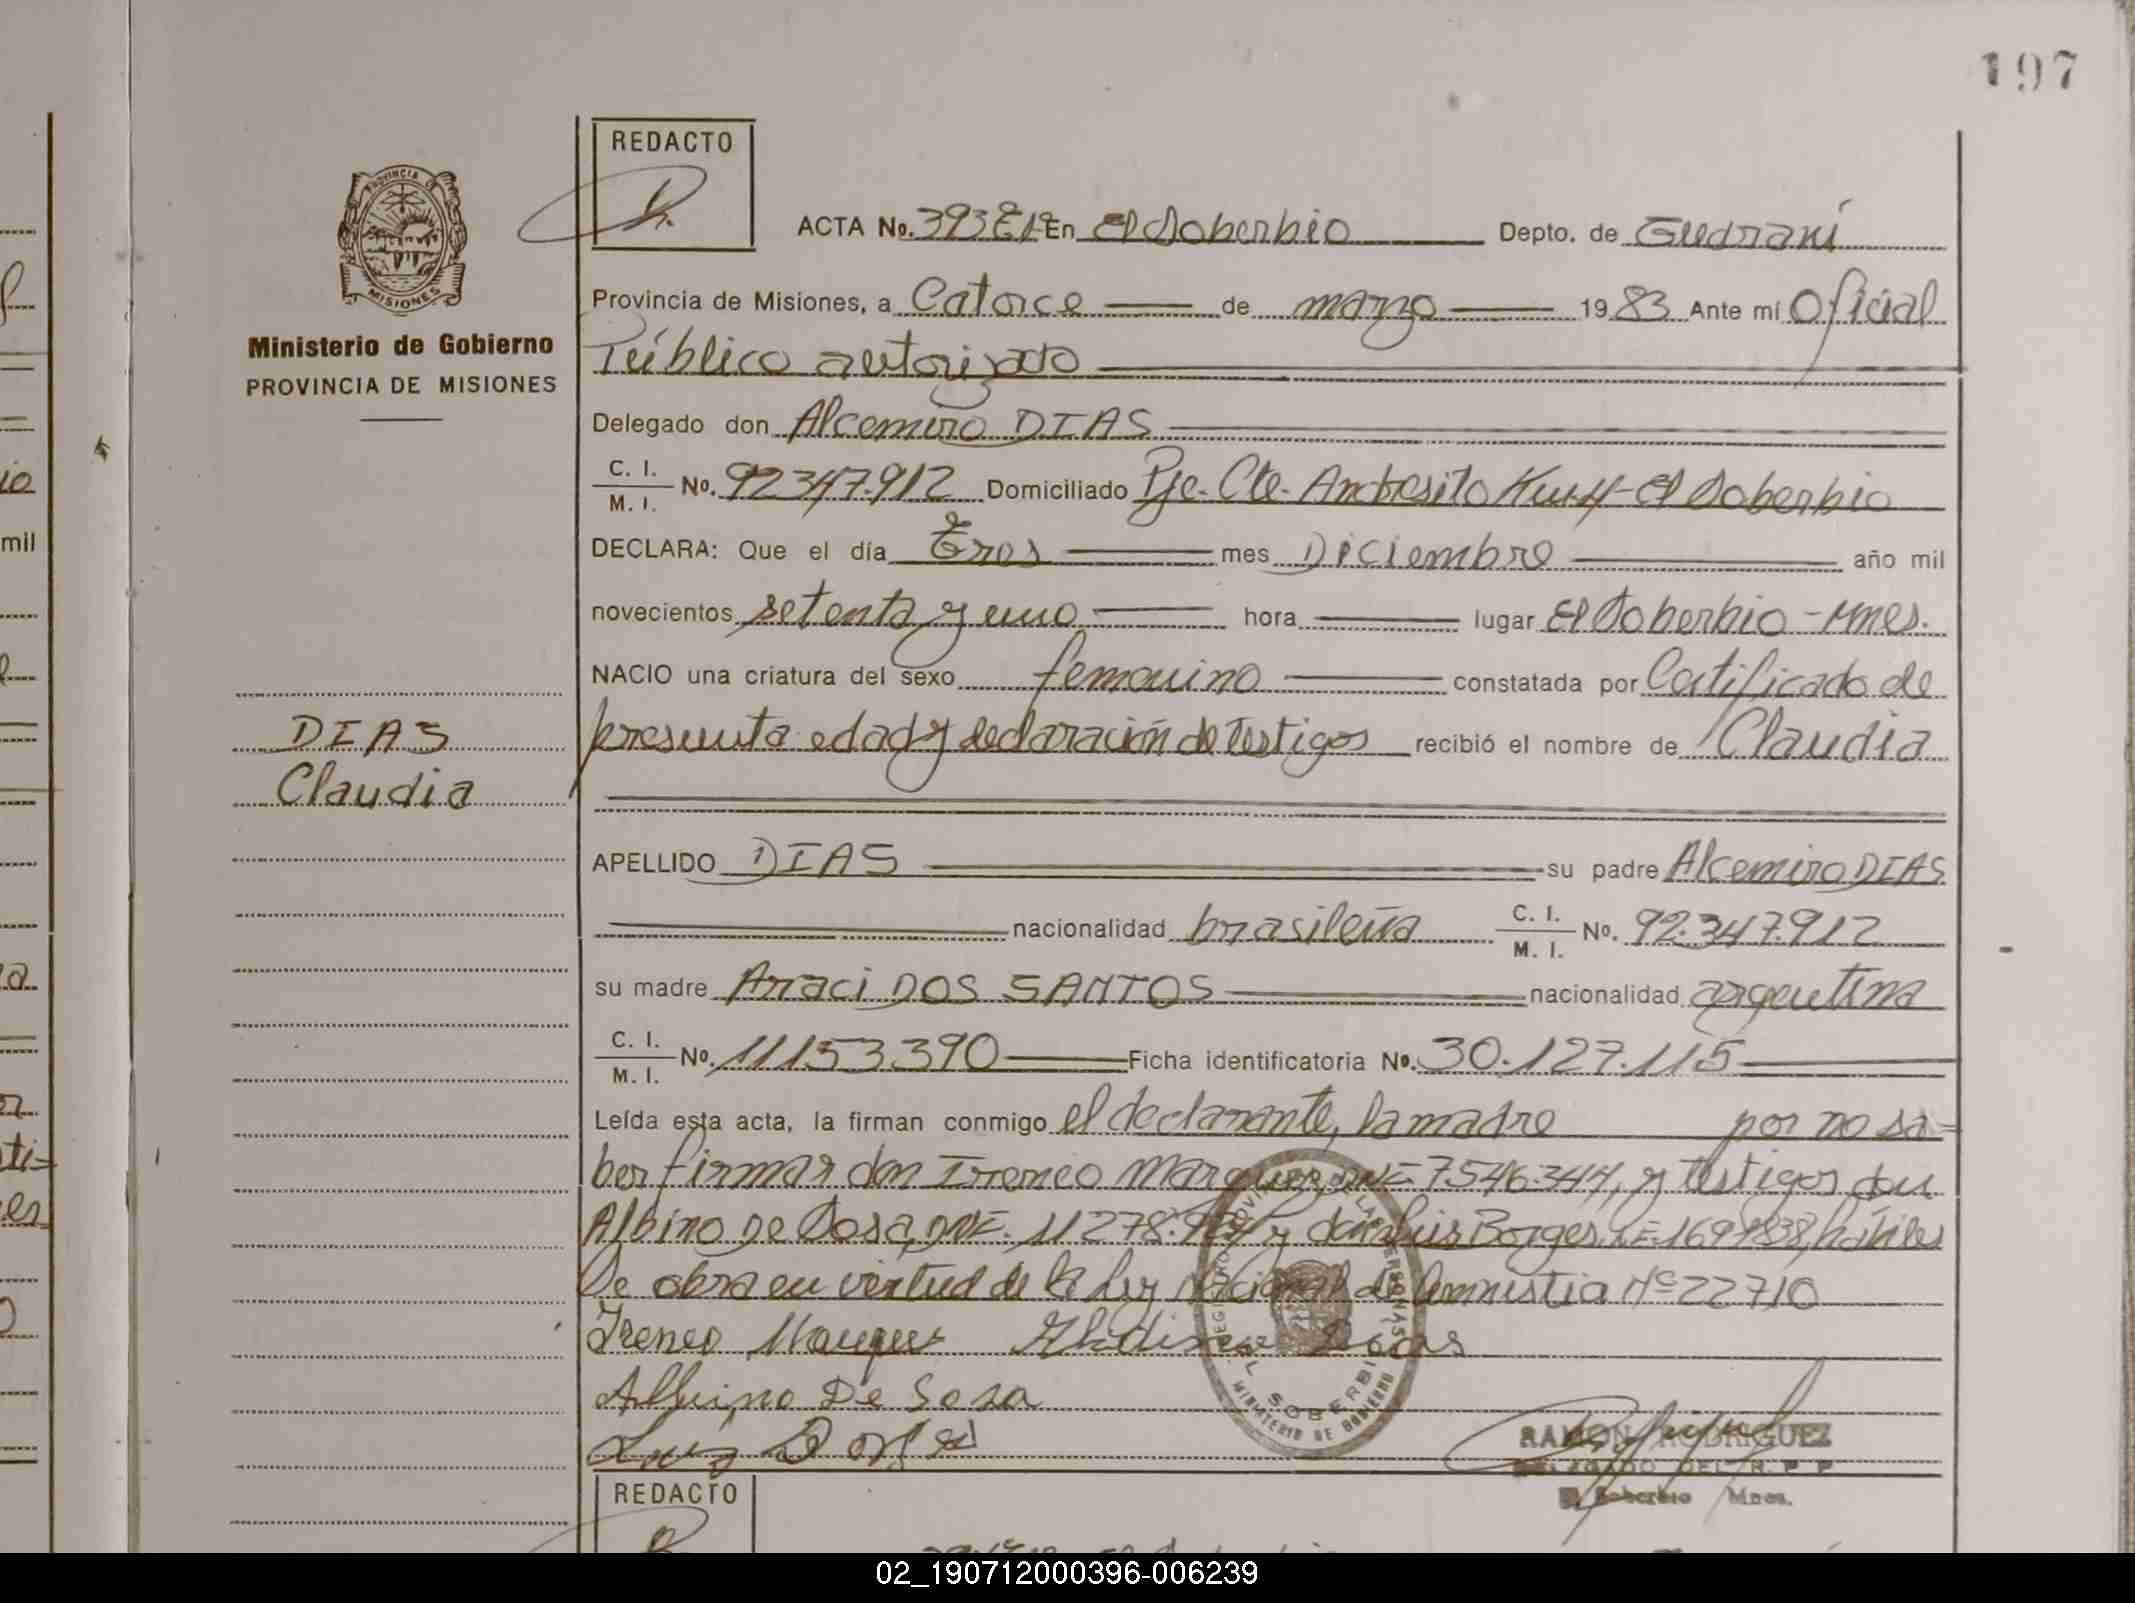 197
REDACTO
ACTA No. 393 En El Soberbio Depto. de Guaraní
Provincia de Misiones, a Catorce de marzo 1983 Ante mí Oficial
Público autorizado
Ministerio de Gobierno
PROVINCIA DE MISIONES
Delegado don Alcemiro DIAS
C. I.
M. I. No. 92347.912 Domiciliado Pje. Cte. Andresito - El Soberbio
DECLARA: Que el día Tres mes Diciembre año mil
novecientos setenta y uno hora lugar El Soberbio - Mnes.
NACIO una criatura del sexo femenino constatada por Certificado de
presunta edad y declaración de testigos recibió el nombre de Claudia
DIAS
Claudia
APELLIDO DIAS su padre Alcemiro DIAS
nacionalidad brasileña C. I.
M. I. No. 92.347.912
su madre Araci DOS SANTOS nacionalidad argentina
C. I.
M. I. No. 11153390 Ficha identificatoria No. 30.127.115
Leída esta acta, la firman conmigo el declarante, la madre por no sa=
ber firmar don Ireneo Marquez, 7546344, y testigos don
Albino De Sosa, 11278. y don Luis Borges, hábiles
De obra en virtud de la Ley Nacional de Amnistia Nº 22710
Ireneo Marques
Albino De Sosa
Luis Borges
EL SOBERBIO
MINISTERIO DE GOBIERNO
RAMON RODRIGUEZ
DELEGADO DEL R. P. P.
El Soberbio Mnes.
REDACTO
02_190712000396-006239